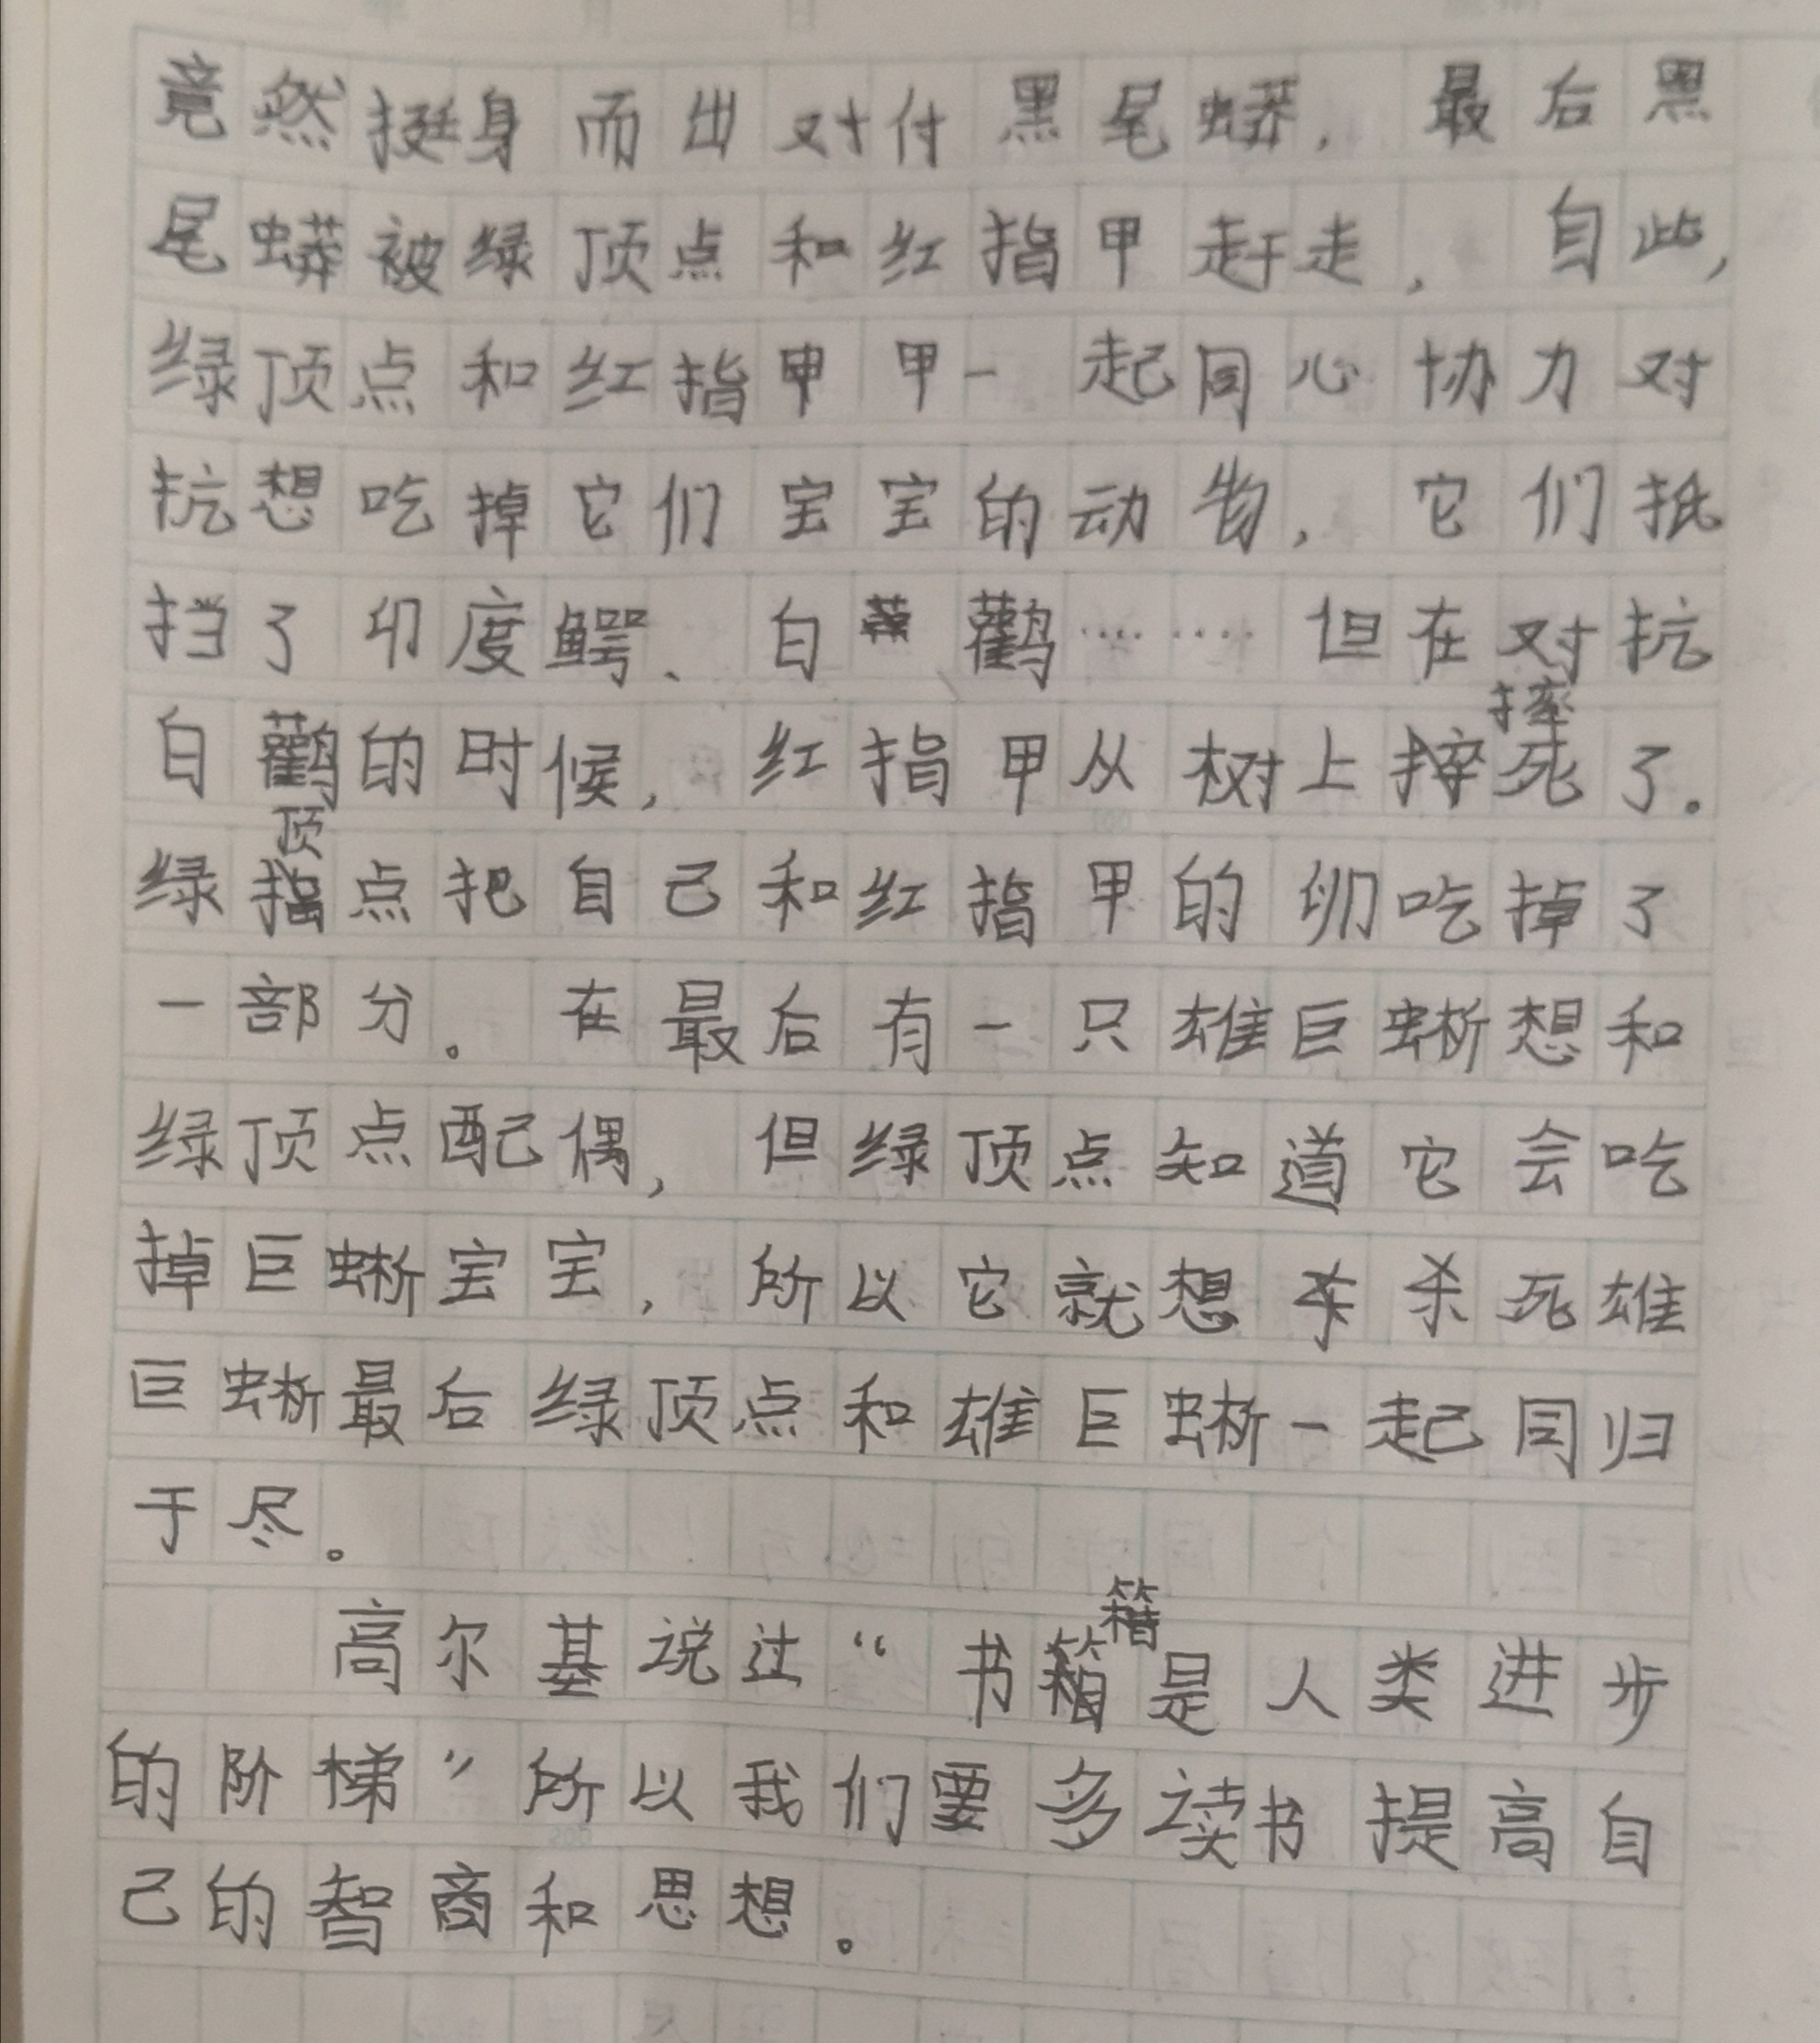 竟然挺身而出对付黑尾蟒，最后黑
尾蟒被绿顶点和红指甲赶走，自此，
绿顶点和红指甲甲一起同心协力对
抗想吃掉它们宝宝的动物，它们抵
挡了印度鳄、白鹳……但在对抗
摔
白鹳的时候，红指甲从树上摔死了。
顶
绿指点把自己和红指甲的卵吃掉了
一部分。在最后有一只雄巨蜥想和
绿顶点配偶，但绿顶点知道它会吃
掉巨蜥宝宝，所以它就想杀杀死雄
巨蜥最后绿顶点和雄巨蜥一起同归
于尽。
籍
高尔基说过“书籍是人类进步
的阶梯”所以我们要多读书提高自
己的智商和思想。